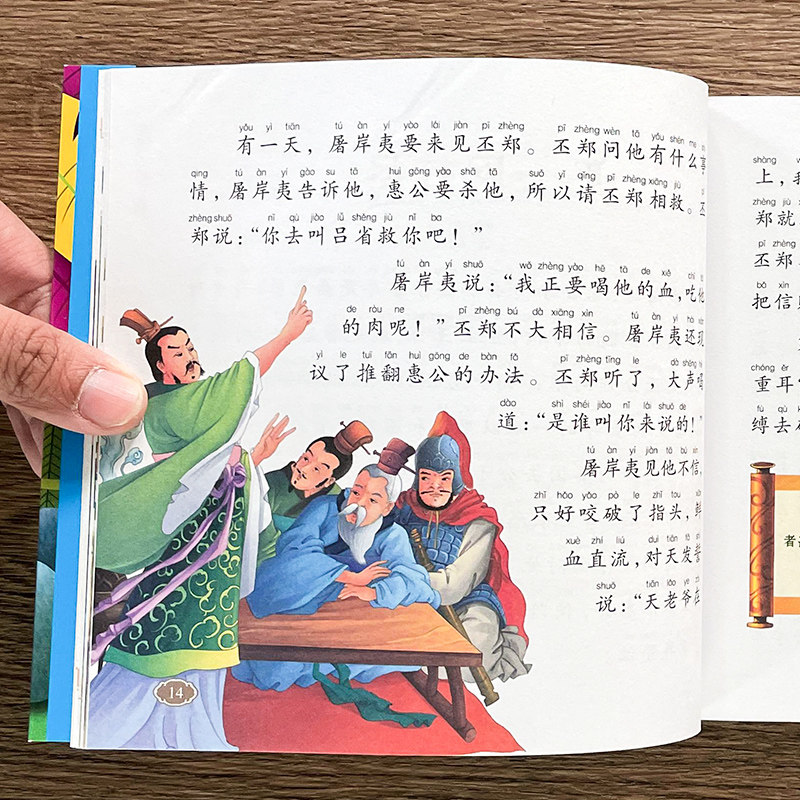 yǒu yì tiān tú àn yí yào lái jiàn pī zhèng pī zhèng wèn tā yǒu shén me
有一天，屠岸夷要来见丕郑。丕郑问他有什么事
qing tú àn yí gào sù tā huì gōng yào shā tā suǒ yǐ qǐng pī zhèng xiāng jiù
情，屠岸夷告诉他，惠公要杀他，所以请丕郑相救。丕
zhèng shuō nǐ qù jiào lǚ shěng jiù nǐ ba
郑说：“你去叫吕省救你吧！”
tú àn yí shuō wǒ zhèng yào hē tā de xiě chī
屠岸夷说：“我正要喝他的血，吃他
de ròu ne pī zhèng bú dà xiāng xìn tú àn yí
的肉呢！”丕郑不大相信。屠岸夷还现
yì le tuī fān huì gōng de bàn fǎ pī zhèng tīng le dà shēng
议了推翻惠公的办法。丕郑听了，大声喝
dào shì shéi jiào nǐ lái shuō de
道：“是谁叫你来说的！”
tú àn yí jiàn tā bú xìn
屠岸夷见他不信，
zhǐ hǎo yǎo pò le zhǐ tou
只好咬破了指头，鲜
xuè zhí liú duì tiān fā
血直流，对天发誓
shuō tiān lǎo ye
说：“天老爷在
14
shàng
上，我
zhèng jiù
郑就
pī zhèng
丕郑
bǎ xìn
把信
chóng ěr
重耳
fù qù
缚去
者